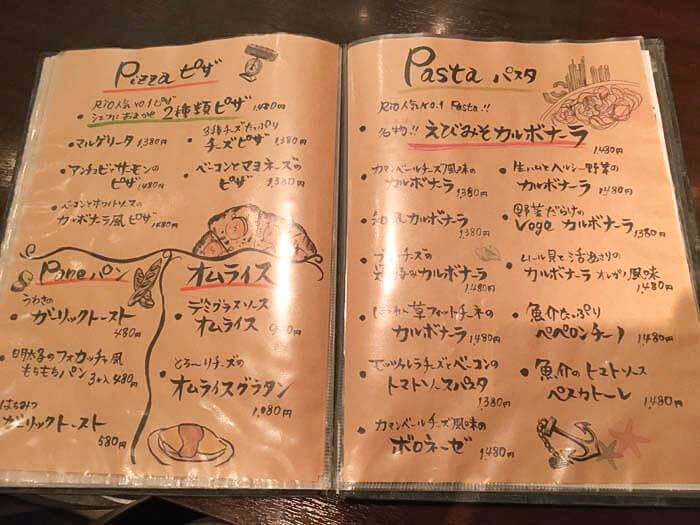 Pizza ピザ
RIO人気NO.1ピザ
シェフにおまかせ 2種類ピザ 1,480円
・マルゲリータ 1,380円
・3種チーズたっぷり
チーズピザ 1,380円
・アンチョビとサーモンの
ピザ 1,480円
・ベーコンとマヨネーズの
ピザ 1,380円
・ベーコンとホワイトソースの
カルボナーラ風ピザ 1,480円
Pane パン
うわさの
・ガーリックトースト
480円
・明太子のフォカッチャ風
もちもちパン 3コ入 480円
はちみつ
・ガーリックトースト
580円
オムライス
・デミグラスソース
オムライス
・とろ〜りチーズの
オムライスグラタン
1,080円
Pasta パスタ
RIO人気NO.1 Pasta!!
・名物!! えびみそカルボナーラ
1,480円
・カマンベールチーズ風味の
カルボナーラ
1,380円
・生ハムとヘルシー野菜の
カルボナーラ 1,480円
カルボナーラ
1,380円
・野菜だらけの
Vege カルボナーラ
1,380円
チーズの
カルボナーラ
1,480円
・ムール貝と活あさりの
カルボナーラ オレガノ風味
1,480円
・ほうれん草フィットチーネの
カルボナーラ
1,480円
・魚介たっぷり
ペペロンチーノ
1,480円
・モッツァレラチーズとベーコンの
トマトソースパスタ
1,380円
・魚介のトマトソース
ペスカトーレ 1,480円
・カマンベールチーズ風味の
ボロネーゼ 1,480円